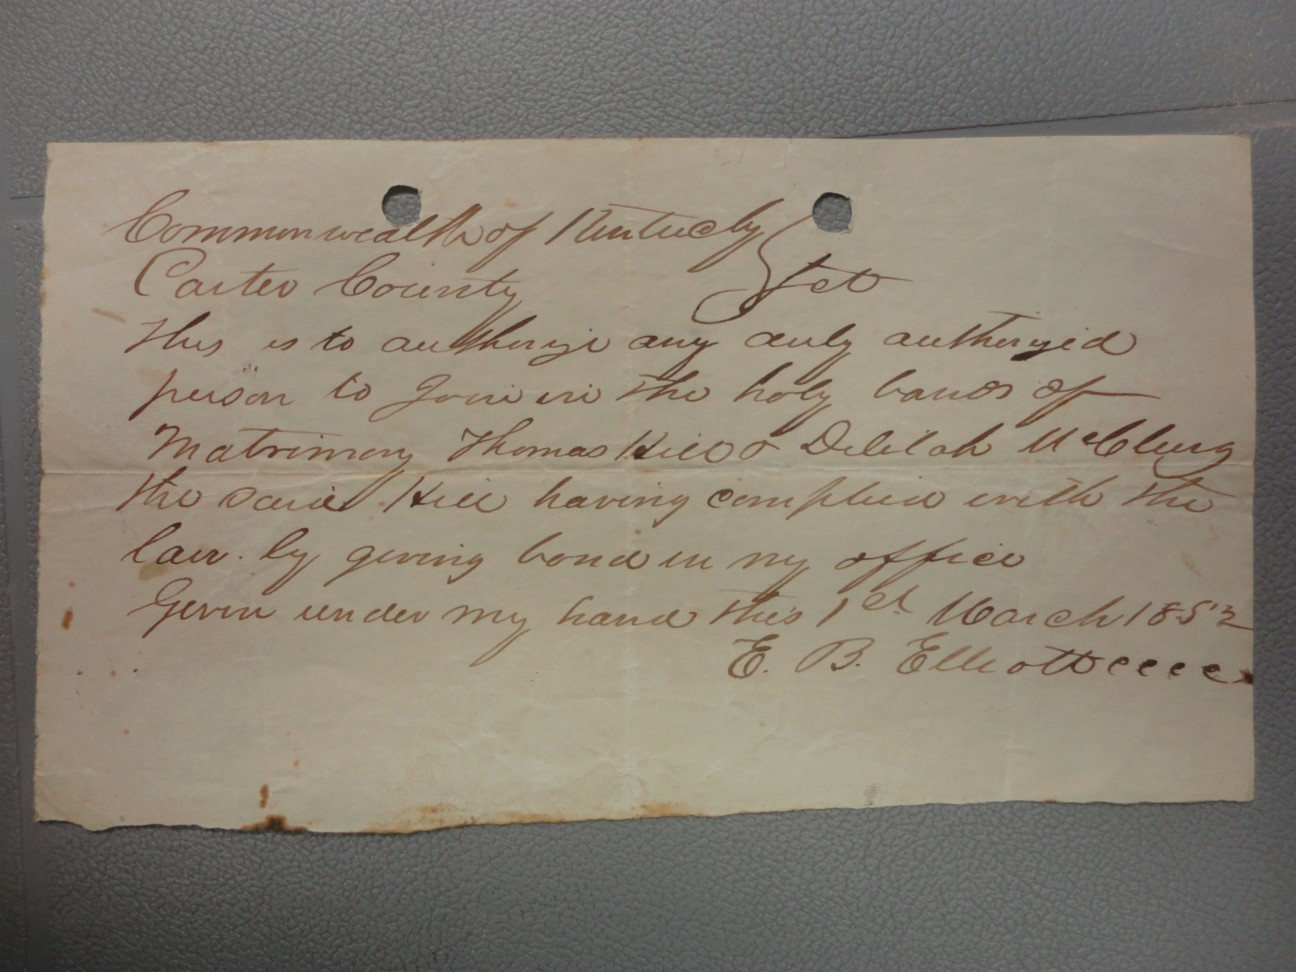 Commonwealth of Kentucky }
Carter County } Sct
This is to authorize any duly authorized
person to Join in the holy bands of
Matrimony Thomas Hill & Delilah McClurg
the said Hill having complied with the
law by giving bond in my office
Given under my hand this 1st March 1852
E. B. Elliott cccc